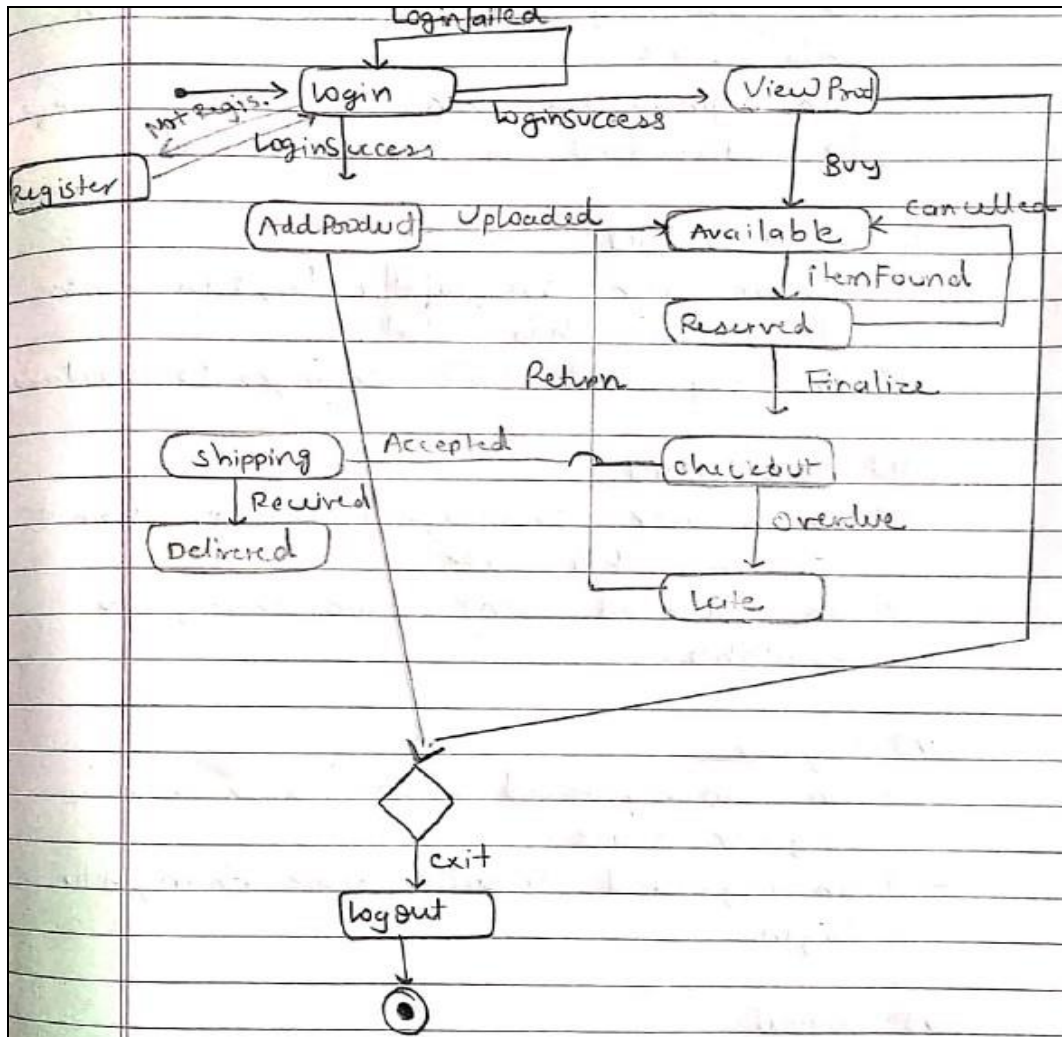 Loginfailed
Login
View Prod
Not Regis.
LoginSuccess
LoginSuccess
Register
Buy
AddProduct
Uploaded
Available
Cancelled
itemFound
Reserved
Return
Finalize
Shipping
Accepted
Checkout
Received
Overdue
Delivered
Late
exit
Logout